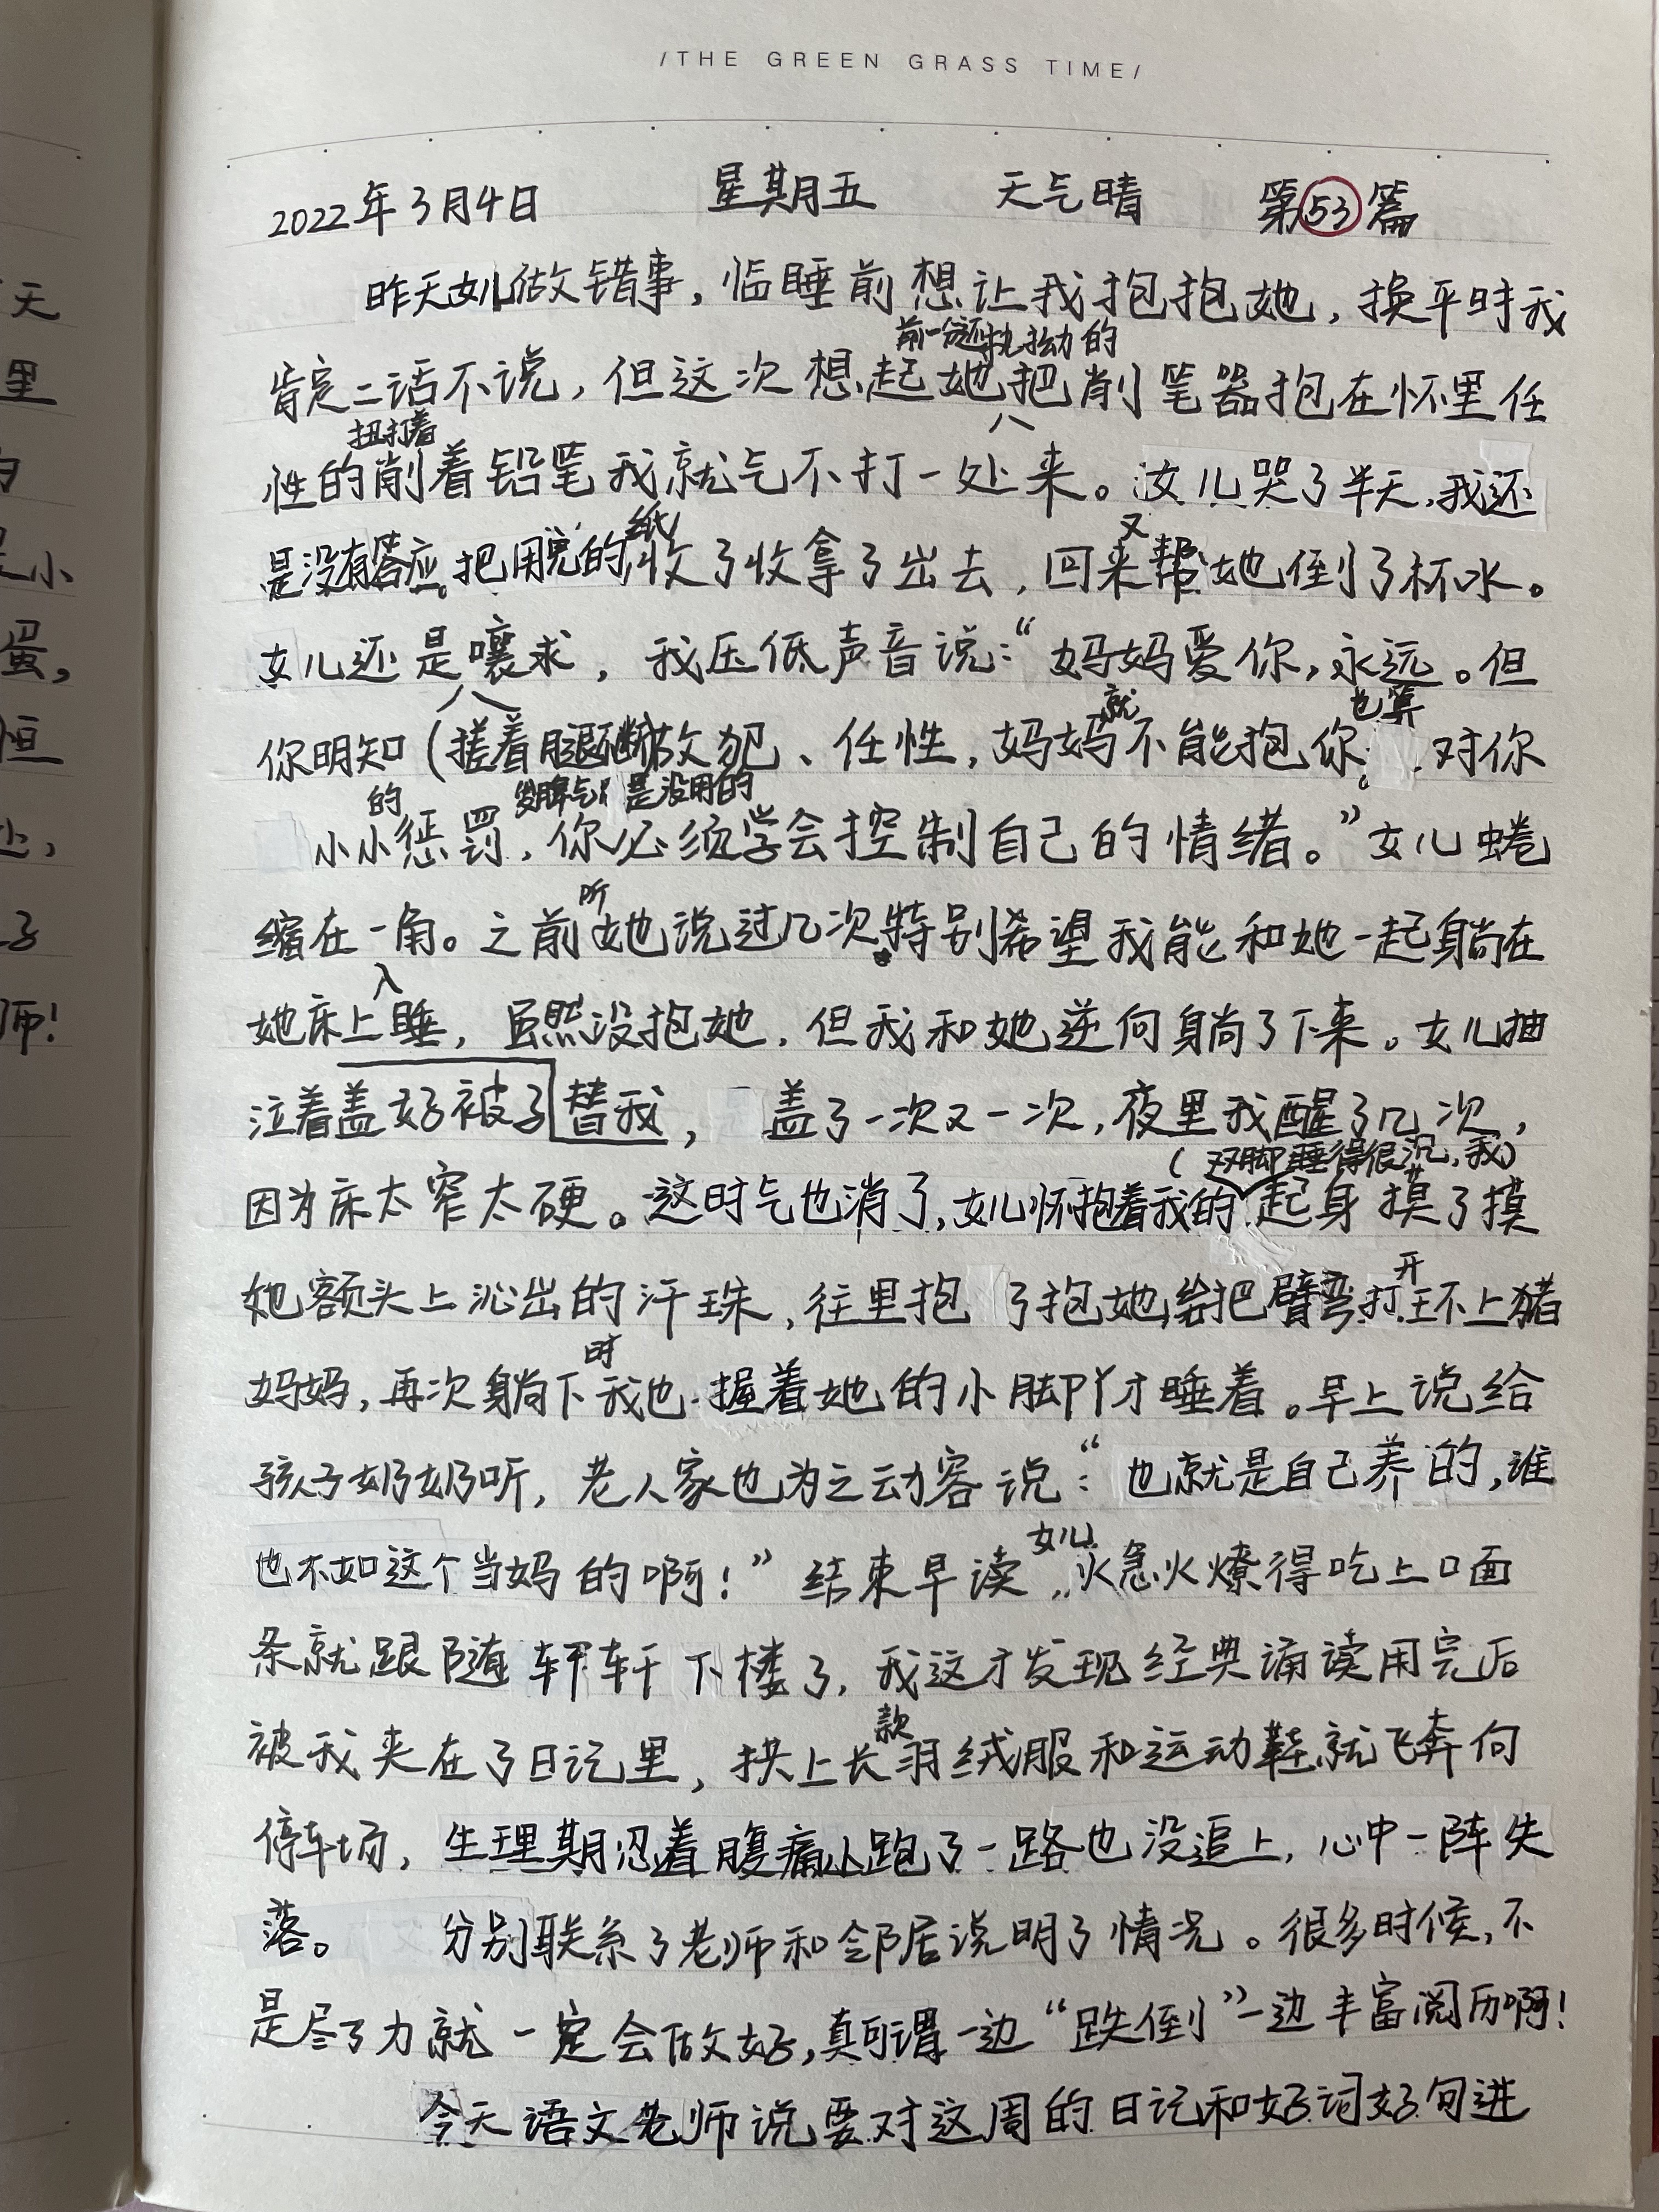 /THE GREEN GRASS TIME/
2022年3月4日 星期五 天气晴 第53篇
昨天女儿做错事，临睡前想让我抱抱她，换平时我
前一分还执拗的
肯定二话不说，但这次想起她把削笔器抱在怀里任
扭打着
性的削着铅笔我就气不打一处来。女儿哭了半天，我还
纸 又
是没有答应。把用完的收了收拿了出去，回来帮她倒了杯水。
女儿还是嚷求，我压低声音说：“妈妈爱你，永远。但
就 也算
你明知(搓着腿不断故犯、任性，妈妈不能抱你。对你
的 发脾气 是没用的
小小惩罚，你必须学会控制自己的情绪。”女儿蜷
听
缩在一角。之前她说过几次特别希望我能和她一起躺在
入
她床上睡，虽然没抱她，但我和她逆向躺了下来。女儿抽
泣着盖好被子替我，盖了一次又一次，夜里我醒了几次，
(双脚睡得很沉，我)
因为床太窄太硬。这时气也消了，女儿怀抱着我的起身摸了摸
开
她额头上沁出的汗珠，往里抱了抱她，给把臂弯打环不上猪
时
妈妈，再次躺下我也握着她的小脚丫才睡着。早上说给
孩子奶奶听，老人家也为之动容说：“也就是自己养的，谁
女儿
也不如这个当妈的啊！”结束早读，火急火燎得吃上口面
条就跟随轩轩下楼了，我这才发现经典诵读用完后
款
被我夹在了日记里，拱上长羽绒服和运动鞋就飞奔向
停车场，生理期忍着腹痛小跑了一路也没追上，心中一阵失
落。分别联系了老师和邻居说明了情况。很多时候，不
是尽了力就一定会做好，真可谓一边“跌倒”一边丰富阅历啊！
今天语文老师说要对这周的日记和好词好句进
天
里
小
蛋，
恒
师！